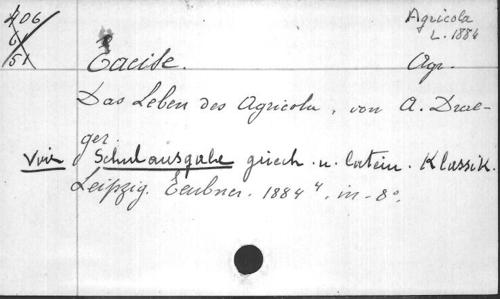 406
6
51
Agricola
L. 1884
Tacite.
Agr.
Das Leben des Agricola, von A. Drae-
ger.
Voir Schulausgabe griech. u. latein. Klassik.
Leipzig. Teubner. 1884⁴. in-8°.